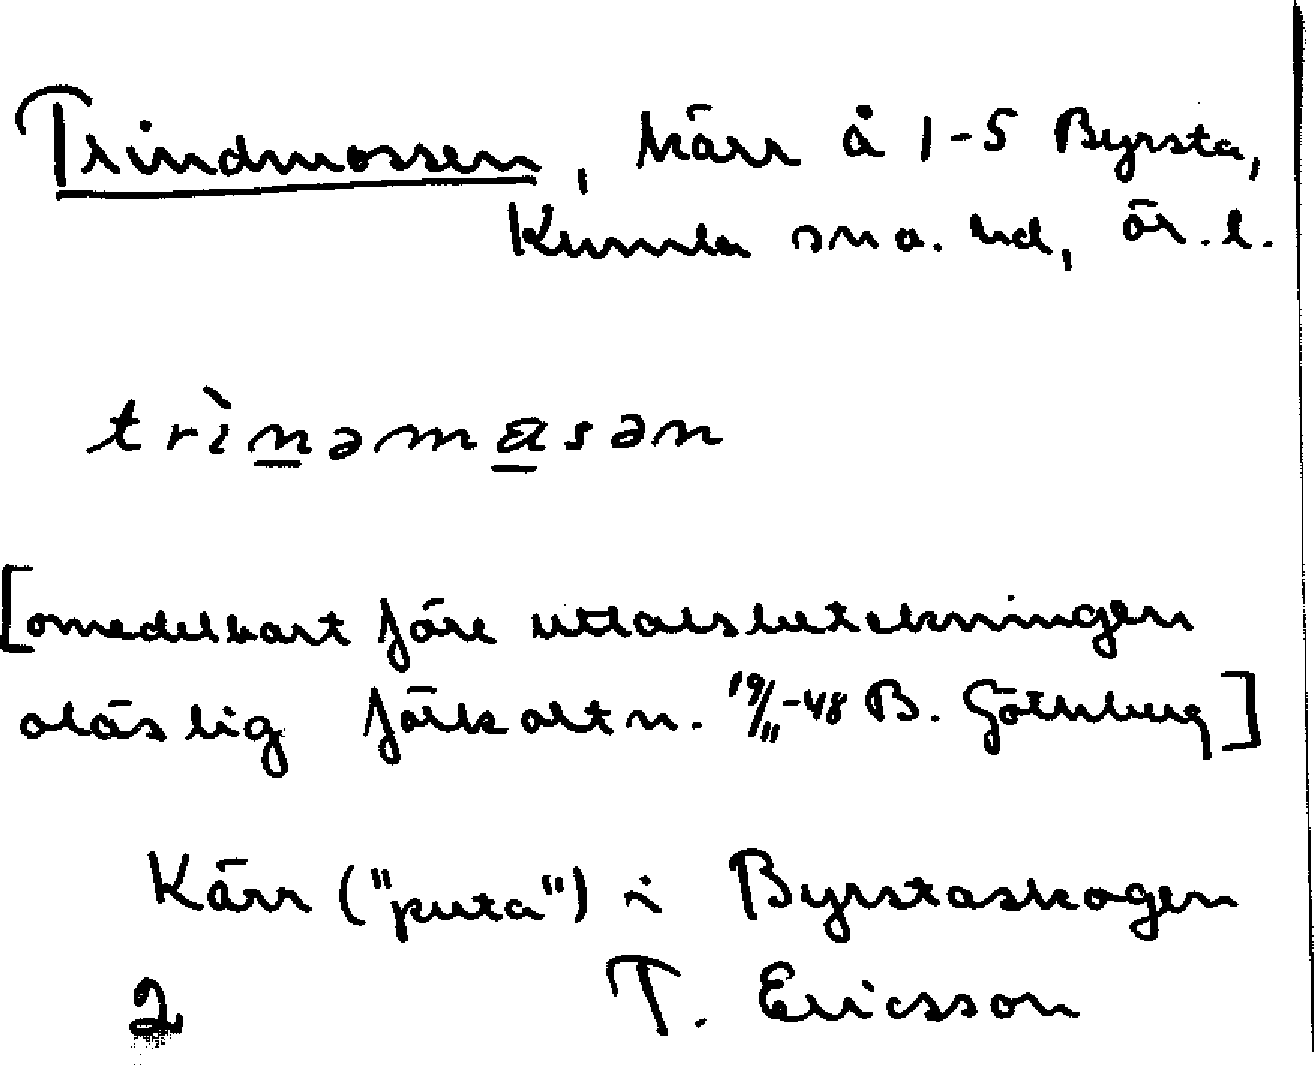 Trindmossen, kärr å 1-5 Byrsta,
Kumla sn o. hd, ör. l.
trìnəmåsən
[omedelbart före uttalsbeteckningen
oläslig förkortn. 19/11-48 B. Göthberg]
Kärr ("puta") i Byrstaskogen
2 T. Ericsson